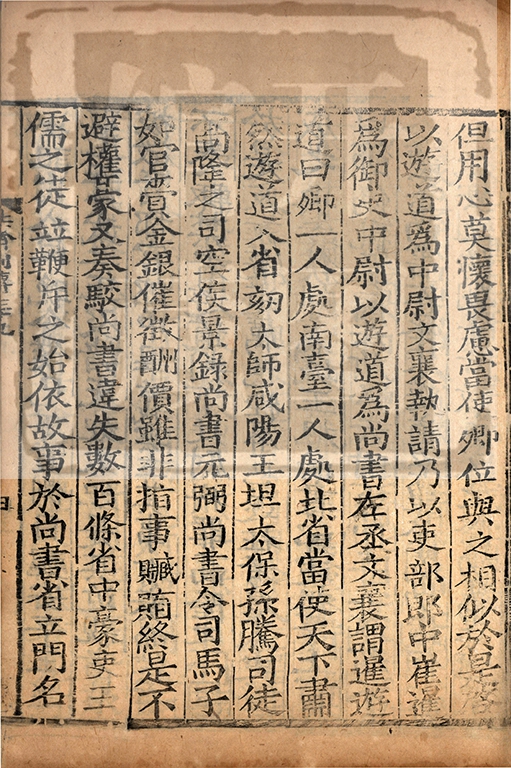 但用心莫懷畏慮當使卿位與之相似於是啓
以遊道爲中尉文襄執請乃以吏部郎中崔暹
爲御史中尉以遊道爲尚書左丞文襄謂暹遊
道曰卿一人處南臺一人處北省當使天下肅
然遊道入省劾太師咸陽王坦太保孫騰司徒
高隆之司空侯景録尚書元弼尚書令司馬子
如官賣金銀催徵酬價雖非指事贓賄終是不
避權豪又奏駁尚書違失數百條省中豪吏王
儒之徒並鞭斥之始依故事於尚書省立門名